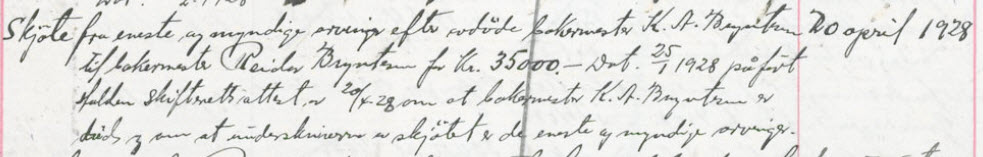 Skjöte fra eneste og myndige arvinger efter avdöde bakermester K. A. Bryntesen 20 april 1928
til bakermester Reidar Bryntesen for Kr. 35000.— Dat. 25/1 1928 påfört
Halden skifteretts attest av 20/4-28 om at bakermester K. A. Bryntesen er
död og om at underskriverne av skjötet er de eneste og myndige arvinger.